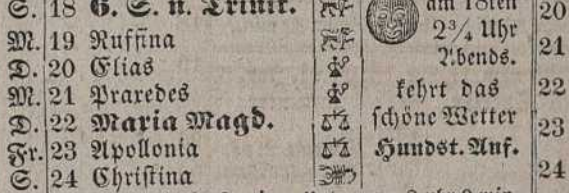 S. 18 6. S. n. Trinit. am 18ten 20
M. 19 Ruffina 2¾ Uhr 21
D. 20 Elias Abends.
M. 21 Praxedes kehrt das 22
D. 22 Maria Magd. schöne Wetter 23
Fr. 23 Apollonia Hundst. Anf.
S. 24 Christina 24